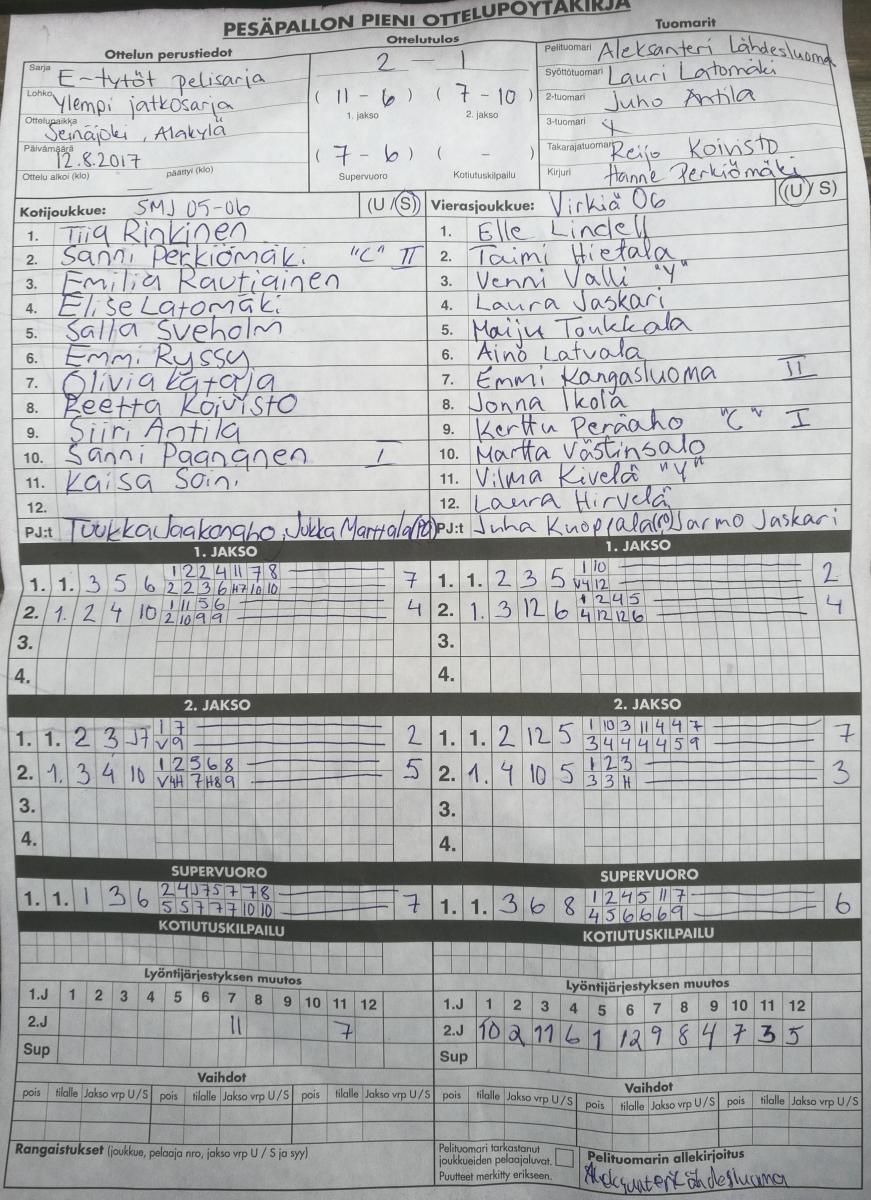 PESÄPALLON PIENI OTTELUPÖYTÄKIRJA
Ottelun perustiedot
Sarja E-tytöt pelisarja
Lohko Ylempi jatkosarja
Ottelupaikka Seinäjoki, Alakylä
Päivämäärä 12.8.2017
Ottelu alkoi (klo) päättyi (klo)
Ottelutulos
2 - 1
( 11 - 6 ) ( 7 - 10 )
1. jakso 2. jakso
( 7 - 6 ) ( - )
Supervuoro Kotiutuskilpailu
Tuomarit
Pelituomari Aleksanteri Lähdesluoma
Syöttötuomari Lauri Latomäki
2-tuomari Juho Antila
3-tuomari
Takarajatuomari Reijo Koivisto
Kirjuri Hanne Perkiömäki
Kotijoukkue: SMJ 05-06 (U/S)
1. Tiia Rinkinen
2. Sanni Perkiömäki "C" II
3. Emilia Rautiainen
4. Elise Latomäki
5. Salla Sveholm
6. Emmi Ryssy
7. Olivia Kataja
8. Reetta Koivisto
9. Siiri Antila
10. Sanni Paananen I
11. Kaisa Soini
12.
PJ:t Tuukka Jaakonaho, Jukka Marttala
Vierasjoukkue: Virkiä 06 (U/S)
1. Elle Lindell
2. Taimi Hietala
3. Venni Valli "Y"
4. Laura Jaskari
5. Maiju Toukkala
6. Aino Latvala
7. Emmi Kangasluoma II
8. Jonna Ikola
9. Kerttu Peräaho "C" I
10. Martta Västinsalo
11. Vilma Kivelä "Y"
12. Laura Hirvelä
PJ:t Juha Kuoppala Jarmo Jaskari
1. JAKSO
1. 1. 3 5 6 1 2 2 4 11 7 8 7
2 2 3 6 H7 10 10
2. 1. 2 4 10 1 11 5 6 4
2 10 9 9
3.
4.
1. JAKSO
1. 1. 2 3 5 1 10 2
V4 12
2. 1. 3 12 6 1 2 4 5 4
4 12 12 6
3.
4.
2. JAKSO
1. 1. 2 3 J7 1 7 2
V 9
2. 1. 3 4 10 1 2 5 6 8 5
V4H 7 H8 9
3.
4.
2. JAKSO
1. 1. 2 12 5 1 10 3 11 4 4 7 7
3 4 4 4 4 5 9
2. 1. 4 10 5 1 2 3 3
3 3 H
3.
4.
SUPERVUORO
1. 1. 1 3 6 2 4 J7 5 7 7 8 7
5 5 7 7 7 10 10
SUPERVUORO
1. 1. 3 6 8 1 2 4 5 11 7 6
4 5 6 6 6 9
KOTIUTUSKILPAILU
KOTIUTUSKILPAILU
Lyöntijärjestyksen muutos
1.J 1 2 3 4 5 6 7 8 9 10 11 12
2.J 11 7
Sup
Lyöntijärjestyksen muutos
1.J 1 2 3 4 5 6 7 8 9 10 11 12
2.J 10 2 11 6 1 12 9 8 4 7 3 5
Sup
Vaihdot
pois tilalle Jakso vrp U/S pois tilalle Jakso vrp U/S pois tilalle Jakso vrp U/S
Vaihdot
pois tilalle Jakso vrp U/S pois tilalle Jakso vrp U/S pois tilalle Jakso vrp U/S
Rangaistukset (joukkue, pelaaja nro, jakso vrp U / S ja syy)
Pelituomari tarkastanut
joukkueiden pelaajaluvat.
Puutteet merkitty erikseen.
Pelituomarin allekirjoitus
Aleksanteri Lähdesluoma